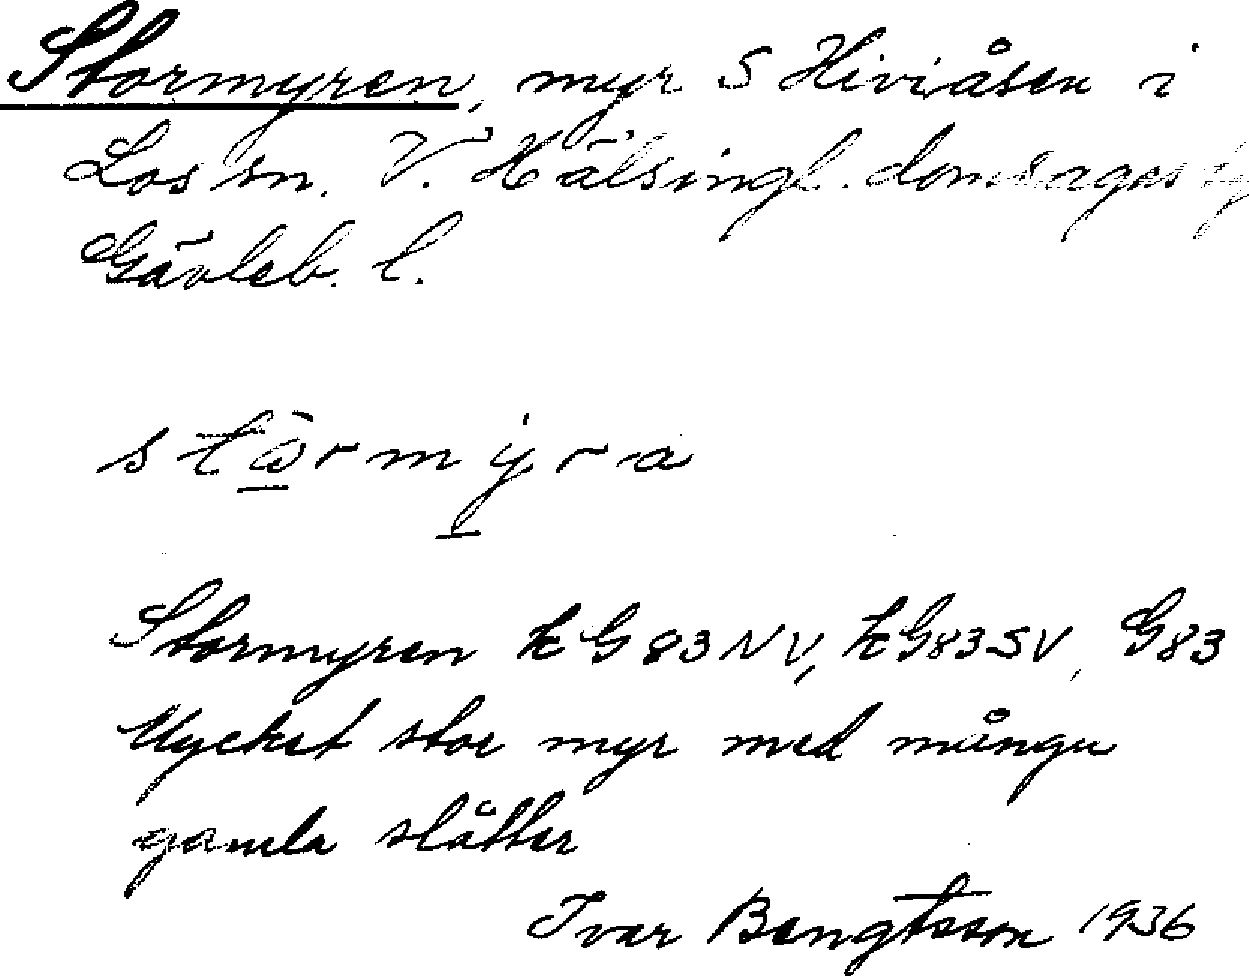 Stormyren, myr S Hiviåsen i
Los sn. V. Hälsingl. domsagas tg
Gävleb. l.
stòrmỳra
Stormyren kG83NV, kG83SV, G83
Mycket stor myr med många
gamla slåtter
Ivar Bengtsson 1936